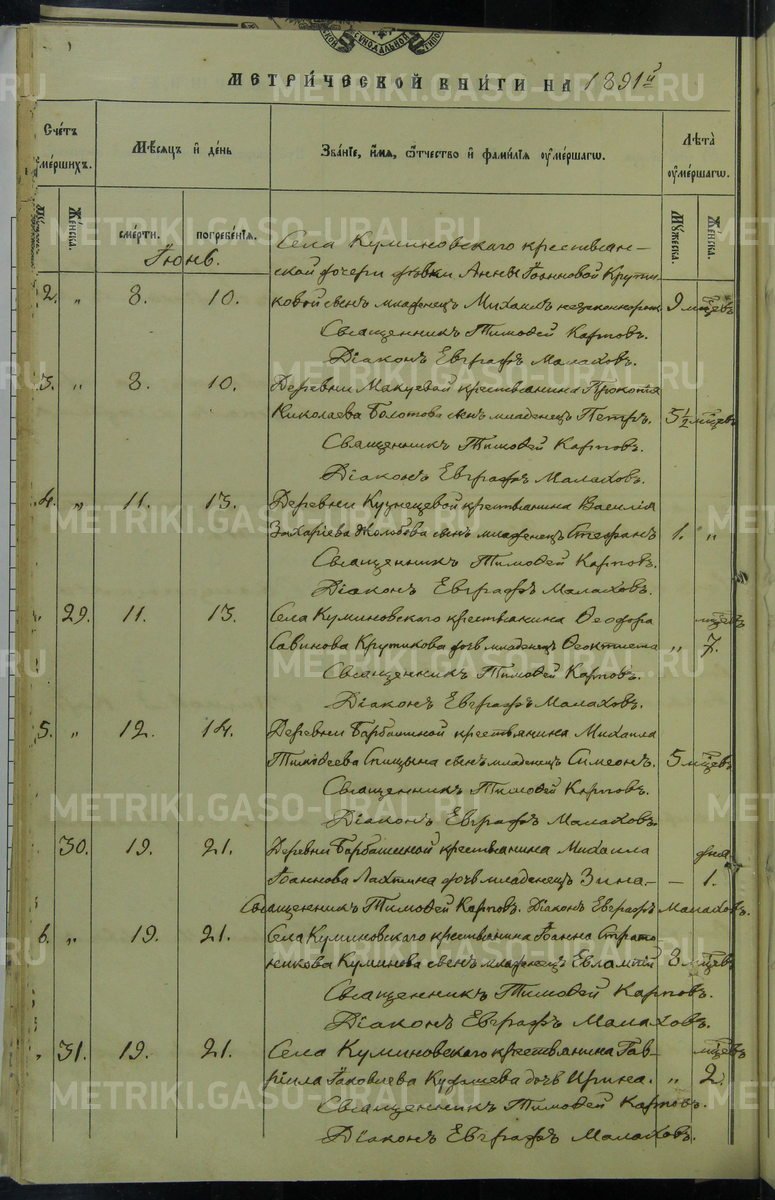 МЕТРИ́ЧЕСКОЙ КНИ́ГИ НА 1891й
Счéтъ ѹмéршихъ.
Мѣ́сяцъ и де́нь
Зва́нїе, и́мя, ѻ҆́тчество и фами́лїя ѹме́ршагѡ.
Лѣ́та ѹме́ршагѡ.
Же́нска.
сме́рти.
погребе́нїя.
Му́жеска.
Же́нска.
Іюнь.
Села Куминовскаго крестьян-
ской дочери дѣвки Анны Іоанновой Крути-
2. " 8. 10. ковой сынъ младенецъ Михаилъ незаконнорож 9 мцевъ
Священникъ Тимоѳей Карповъ.
Діаконъ Евграфъ Малаховъ.
3. " 8. 10. Деревни Макуевой крестьянина Прокопія
Николаева Болотова сынъ младенецъ Петръ. 5½ мцевъ
Священникъ Тимоѳей Карповъ.
Діаконъ Евграфъ Малаховъ.
4. " 11. 13. Деревни Кузнецевой крестьянина Василія
Захаріева Жолобова сынъ младенецъ Стефанъ 1. "
Священникъ Тимоѳей Карповъ.
Діаконъ Евграфъ Малаховъ.
" 29. 11. 13. Села Куминовскаго крестьянина Ѳеодора мцевъ
Савинова Крутикова дочь младенецъ Ѳеоктиста " 7.
Священникъ Тимоѳей Карповъ.
Діаконъ Евграфъ Малаховъ.
5. " 12. 14. Деревни Барбашиной крестьянина Михаила
Тимоѳеева Спицына сынъ младенецъ Симеонъ. 5 мцевъ
Священникъ Тимоѳей Карповъ.
Діаконъ Евграфъ Малаховъ.
30. 19. 21. Деревни Барбашиной крестьянина Михаила дня
Іоаннова Лахтина дочь младенецъ Зина- — 1.
Священникъ Тимоѳей Карповъ. Діаконъ Евграфъ Малаховъ.
6. " 19. 21. Села Куминовскаго крестьянина Іоанна Страто
никова Куминова сынъ младенецъ Евлампій 8 мцевъ
Священникъ Тимоѳей Карповъ.
Діаконъ Евграфъ Малаховъ.
" 31. 19. 21. Села Куминовскаго крестьянина Гав- мцевъ
ріила Іаковлева дочь Ирина. " 2.
Священникъ Тимоѳей Карповъ.
Діаконъ Евграфъ Малаховъ.
METRIKI.GASO-URAL.RU